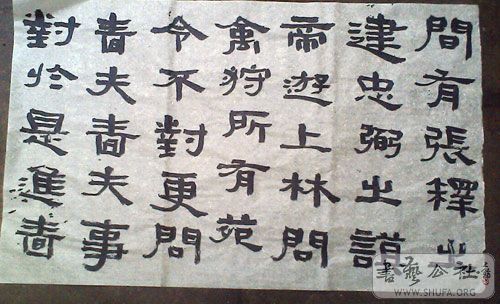 間有張釋之
建忠弼之謨
帝遊上林問
禽狩所有苑
令不對更問
嗇夫嗇夫事
對於是進嗇
書藝公社
WWW.SHUFA.ORG